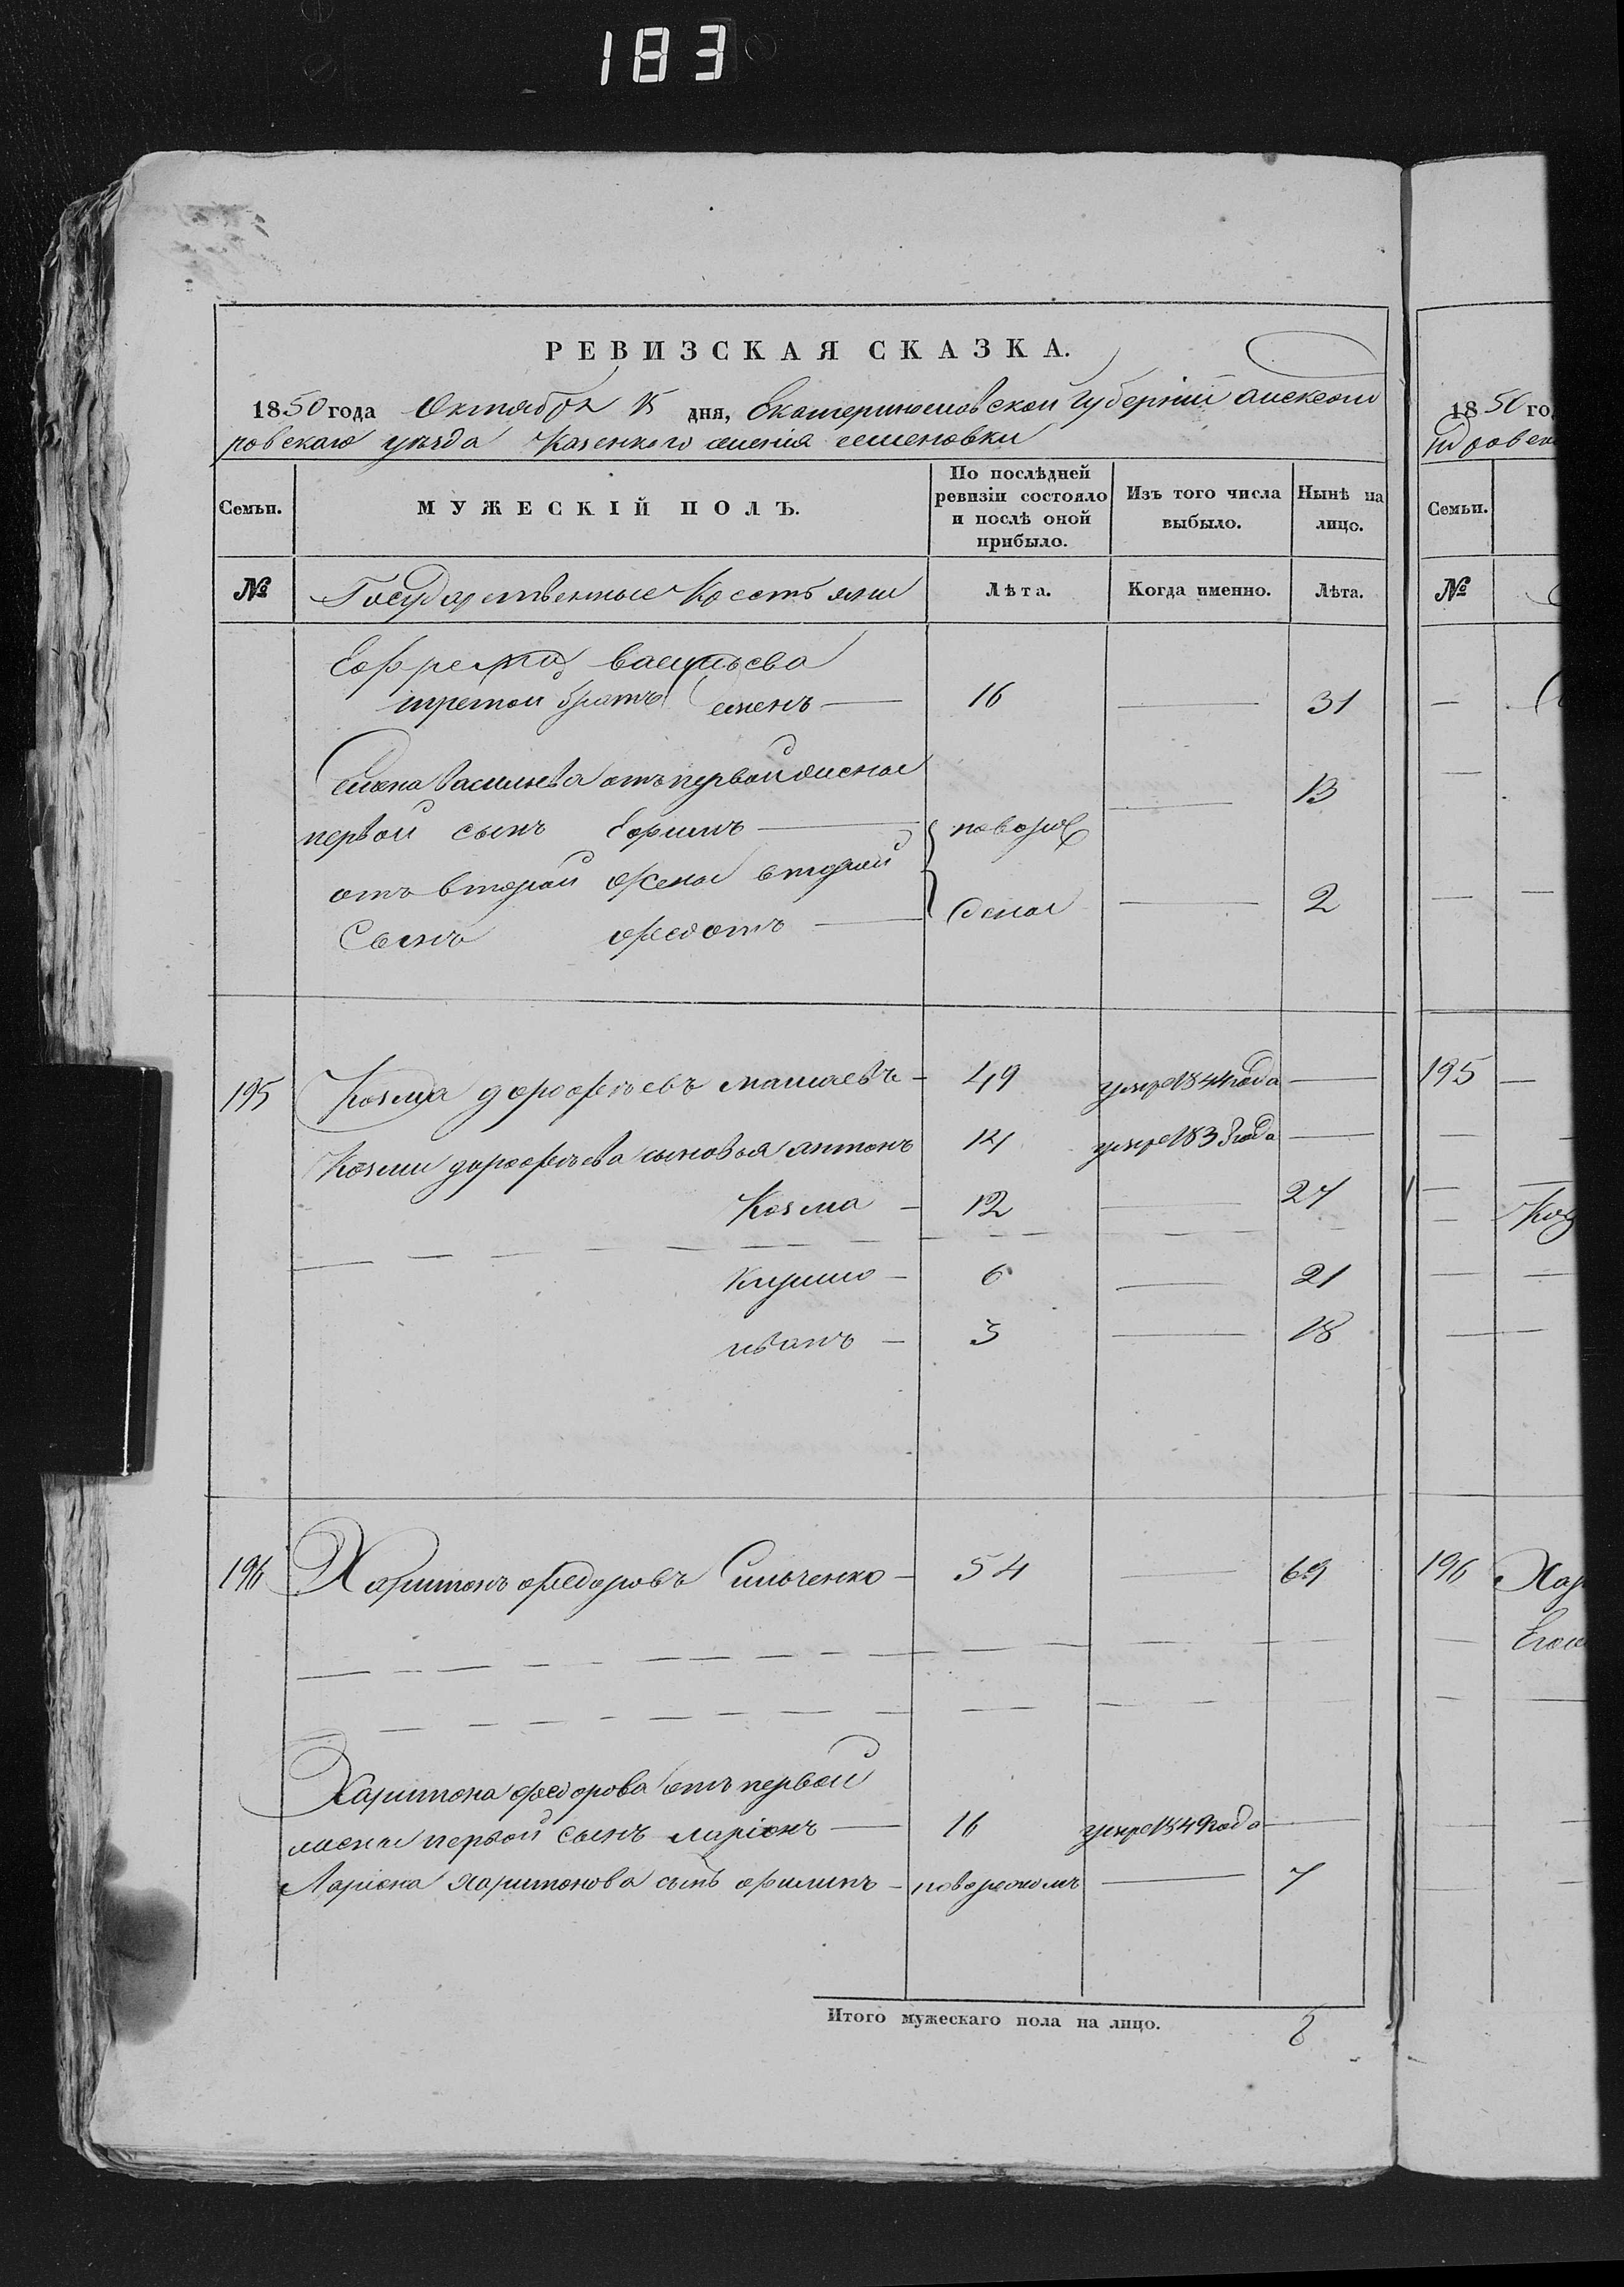 183
РЕВИЗСКАЯ СКАЗКА.
1850 года Октября 15 дня, Екатеринославской Губерніи александ
ровскаго уѣзда Казенного селенія семеновки
Семьи.
МУЖЕСКІЙ ПОЛЪ.
По послѣдней ревизіи состояло и послѣ оной прибыло.
Изъ того числа выбыло.
Нынѣ на лицо.
№ Государственные Крестьяни Лѣта. Когда именно. Лѣта.
Ефрема васильева
третой братъ Семенъ — 16 — 31
Семена Васильева отъ первой жены
первой сынъ Ефимъ — новорож — 13
отъ второй жены второй
Сынъ федотъ — дены — 2
195 Козма дорофѣевъ мамаевъ — 49 умре 1844 года —
Козми дорофѣева сыновья антонъ 14 умре 1838 года —
Козма — 12 — 27
Кирило — 6 — 21
иванъ — 3 — 18
196 Харитонъ федоровъ Сильченко — 54 — 69
Харитона федорова отъ первой
жены первой сынъ ларіонъ — 16 умре 1849 года —
Ларіона харитонова сынъ филипъ — новорожденъ — 7
Итого мужескаго пола на лицо. 8
1850 го
ндровск
Семьи.
№
195
Коз
196 Хар